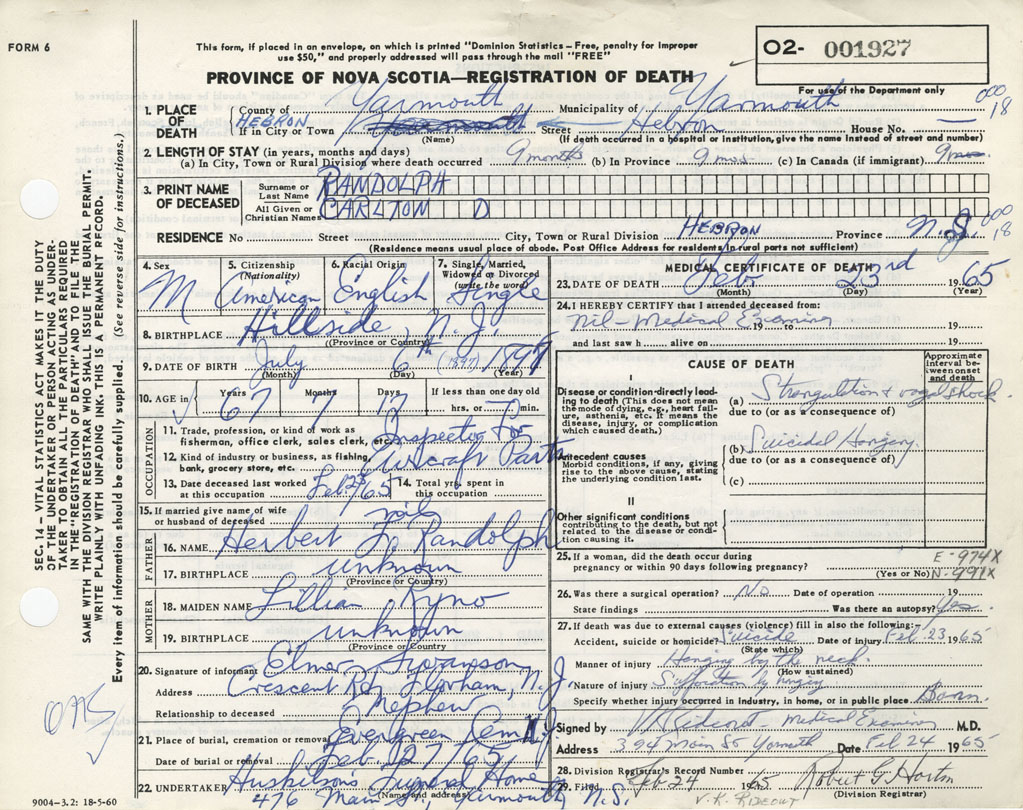 FORM 6
This form, if placed in an envelope, on which is printed "Dominion Statistics – Free, penalty for improper
use $50," and properly addressed will pass through the mail "FREE"
PROVINCE OF NOVA SCOTIA—REGISTRATION OF DEATH
O2- 001927
For use of the Department only
1. PLACE OF DEATH
County of Yarmouth Municipality of Yarmouth 000 18
HEBRON If in City or Town Street Hebron House No.
(Name) (If death occurred in a hospital or institution, give the name instead of street and number)
2. LENGTH OF STAY (in years, months and days)
(a) In City, Town or Rural Division where death occurred 9 months (b) In Province 9 mos. (c) In Canada (if immigrant) 9 mos.
3. PRINT NAME OF DECEASED
Surname or Last Name RANDOLPH
All Given or Christian Names CARLTON D
RESIDENCE No Street City, Town or Rural Division HEBRON Province N.S. 000 18
(Residence means usual place of abode. Post Office Address for residents in rural parts not sufficient)
4. Sex M
5. Citizenship (Nationality) American
6. Racial Origin English
7. Single, Married, Widowed or Divorced (write the word) Single
8. BIRTHPLACE Hillside, N.J.
(Province or Country)
9. DATE OF BIRTH July 6th (1897) 1897
(Month) (Day) (Year)
10. AGE in Years 67 7 Days 17 If less than one day old
hrs. or min.
OCCUPATION
11. Trade, profession, or kind of work as
fisherman, office clerk, sales clerk, etc. Inspector for
12. Kind of industry or business, as fishing,
bank, grocery store, etc. Aircraft Parts
13. Date deceased last worked
at this occupation Feb 23/65
14. Total yrs. spent in
this occupation
15. If married give name of wife
or husband of deceased nil
FATHER
16. NAME Herbert F. Randolph
17. BIRTHPLACE unknown
(Province or Country)
MOTHER
18. MAIDEN NAME Lillian Ryno
19. BIRTHPLACE unknown
(Province or Country
20. Signature of informant Elmer Swanson
Address Crescent Rd, Florham, N.J.
Relationship to deceased Nephew
21. Place of burial, cremation or removal Evergreen Cem. N.J.
Date of burial or removal Feb 27/65
22. UNDERTAKER Huskilson's Funeral Home
(Name and address)
476 Main St, Yarmouth N.S.
MEDICAL CERTIFICATE OF DEATH
23. DATE OF DEATH Feb. 23rd 1965
(Month) (Day) (Year)
24. I HEREBY CERTIFY that I attended deceased from:
Nil – Medical Examiner 19 to 19
and last saw h alive on 19
CAUSE OF DEATH
Approximate interval between onset and death
I
Disease or condition directly leading to death (This does not mean the mode of dying, e.g., heart failure, asthenia, etc. It means the disease, injury, or complication which caused death.)
(a) Strangulation & vagal shock.
due to (or as a consequence of)
(b) Suicidal Hanging.
due to (or as a consequence of)
(c)
Antecedent causes
Morbid conditions, if any, giving rise to the above cause, stating the underlying condition last.
II
Other significant conditions
contributing to the death, but not related to the disease or condition causing it.
25. If a woman, did the death occur during
pregnancy or within 90 days following pregnancy?
(Yes or No)
E-974X
N-991X
26. Was there a surgical operation? No Date of operation 19
State findings Was there an autopsy? Yes.
27. If death was due to external causes (violence) fill in also the following:–
Accident, suicide or homicide? Suicide Date of injury Feb 23 1965
(State which)
Manner of injury Hanging by the neck.
(How sustained)
Nature of injury Suffocation by hanging
Specify whether injury occurred in industry, in home, or in public place Barn.
Signed by V K Rideout – Medical Examiner M.D.
Address 394 Main St Yarmouth Date Feb 24 1965
28. Division Registrar's Record Number
29. Filed Feb 24 1965 Robert G. Horton
(Division Registrar)
V.K. RIDEOUT
9004—3.2: 18-5-60
SEC. 14 – VITAL STATISTICS ACT MAKES IT THE DUTY
OF THE UNDERTAKER OR PERSON ACTING AS UNDER-
TAKER TO OBTAIN ALL THE PARTICULARS REQUIRED
IN THE "REGISTRATION OF DEATH" AND TO FILE THE
SAME WITH THE DIVISION REGISTRAR WHO SHALL ISSUE THE BURIAL PERMIT.
WRITE PLAINLY WITH UNFADING INK. THIS IS A PERMANENT RECORD.
Every item of information should be carefully supplied. (See reverse side for instructions.)